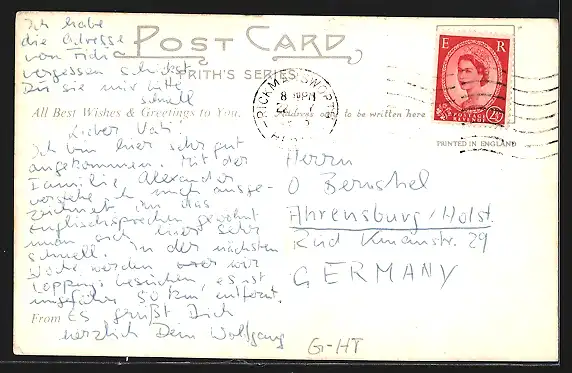 Ich habe
die Adresse
von Fidia
vergessen schickst
Du sie mir bitte
schnell
POST CARD
FRITH'S SERIES
All Best Wishes & Greetings to You.
Address only to be written here
E R
POSTAGE REVENUE
2½D
PRINTED IN ENGLAND
RICKMANSWORTH
8 PM
Lieber Vati!
Ich bin hier sehr gut
angekommen. Mit der
Familie Alexander
verstehe ich mich ausge-
zeichnet an das
Englischsprechen gewöhnt
man sich einer sehr
schnell. In der nächsten
Woche werden wir
besuchen, es ist
ungefähr 50 km entfernt.
From
Es grüßt Dich
herzlich Dein Wolfgang
Herrn
O Bernshel
Ahrensburg/Holst.
29
GERMANY
G-HT